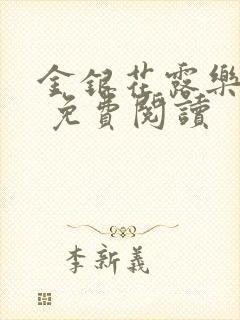 金銀花露樂
免費閱讀
李新義